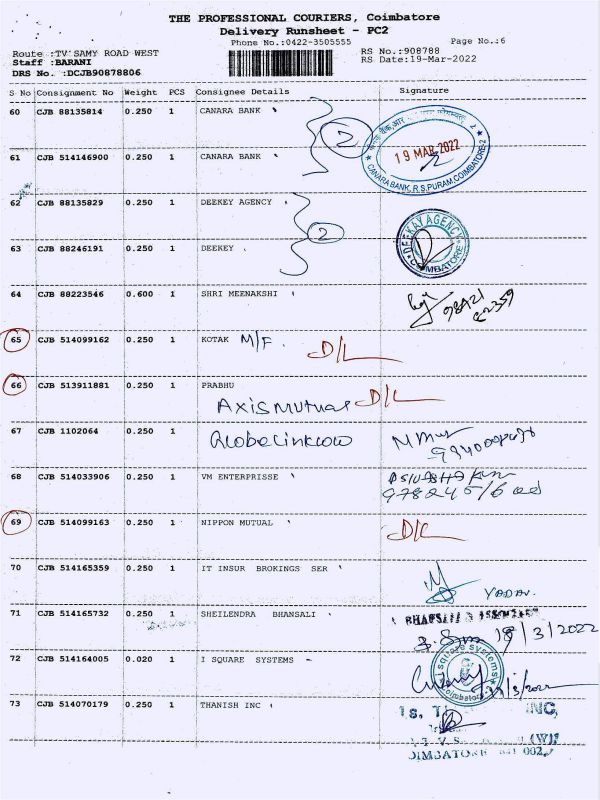 THE PROFESSIONAL COURIERS, Coimbatore
Delivery Runsheet - PC2
Phone No.:0422-3505555
Page No.:6
Route :TV SAMY ROAD WEST
RS No.:908788
Staff :BARANI
RS Date:19-Mar-2022
DRS No. :DCJB90878806
S No Consignment No Weight PCS Consignee Details Signature
60 CJB 88135814 0.250 1 CANARA BANK
2
19 MAR 2022
CANARA BANK, R.S.PURAM, COIMBATORE-2
61 CJB 514146900 0.250 1 CANARA BANK
62 CJB 88135829 0.250 1 DEEKEY AGENCY
2
DEEKAY AGENCY
COIMBATORE
63 CJB 88246191 0.250 1 DEEKEY
64 CJB 88223546 0.600 1 SHRI MEENAKSHI
65 CJB 514099162 0.250 1 KOTAK M/F. D/L
66 CJB 513911881 0.250 1 PRABHU
Axis Mutual D/L
67 CJB 1102064 0.250 1
68 CJB 514033906 0.250 1 VM ENTERPRISSE
69 CJB 514099163 0.250 1 NIPPON MUTUAL D/L
70 CJB 514165359 0.250 1 IT INSUR BROKINGS SER
YADAV.
71 CJB 514165732 0.250 1 SHEILENDRA BHANSALI
/3/2022
72 CJB 514164005 0.020 1 I SQUARE SYSTEMS
square systems
Coimbatore
73 CJB 514070179 0.250 1 THANISH INC
INC,